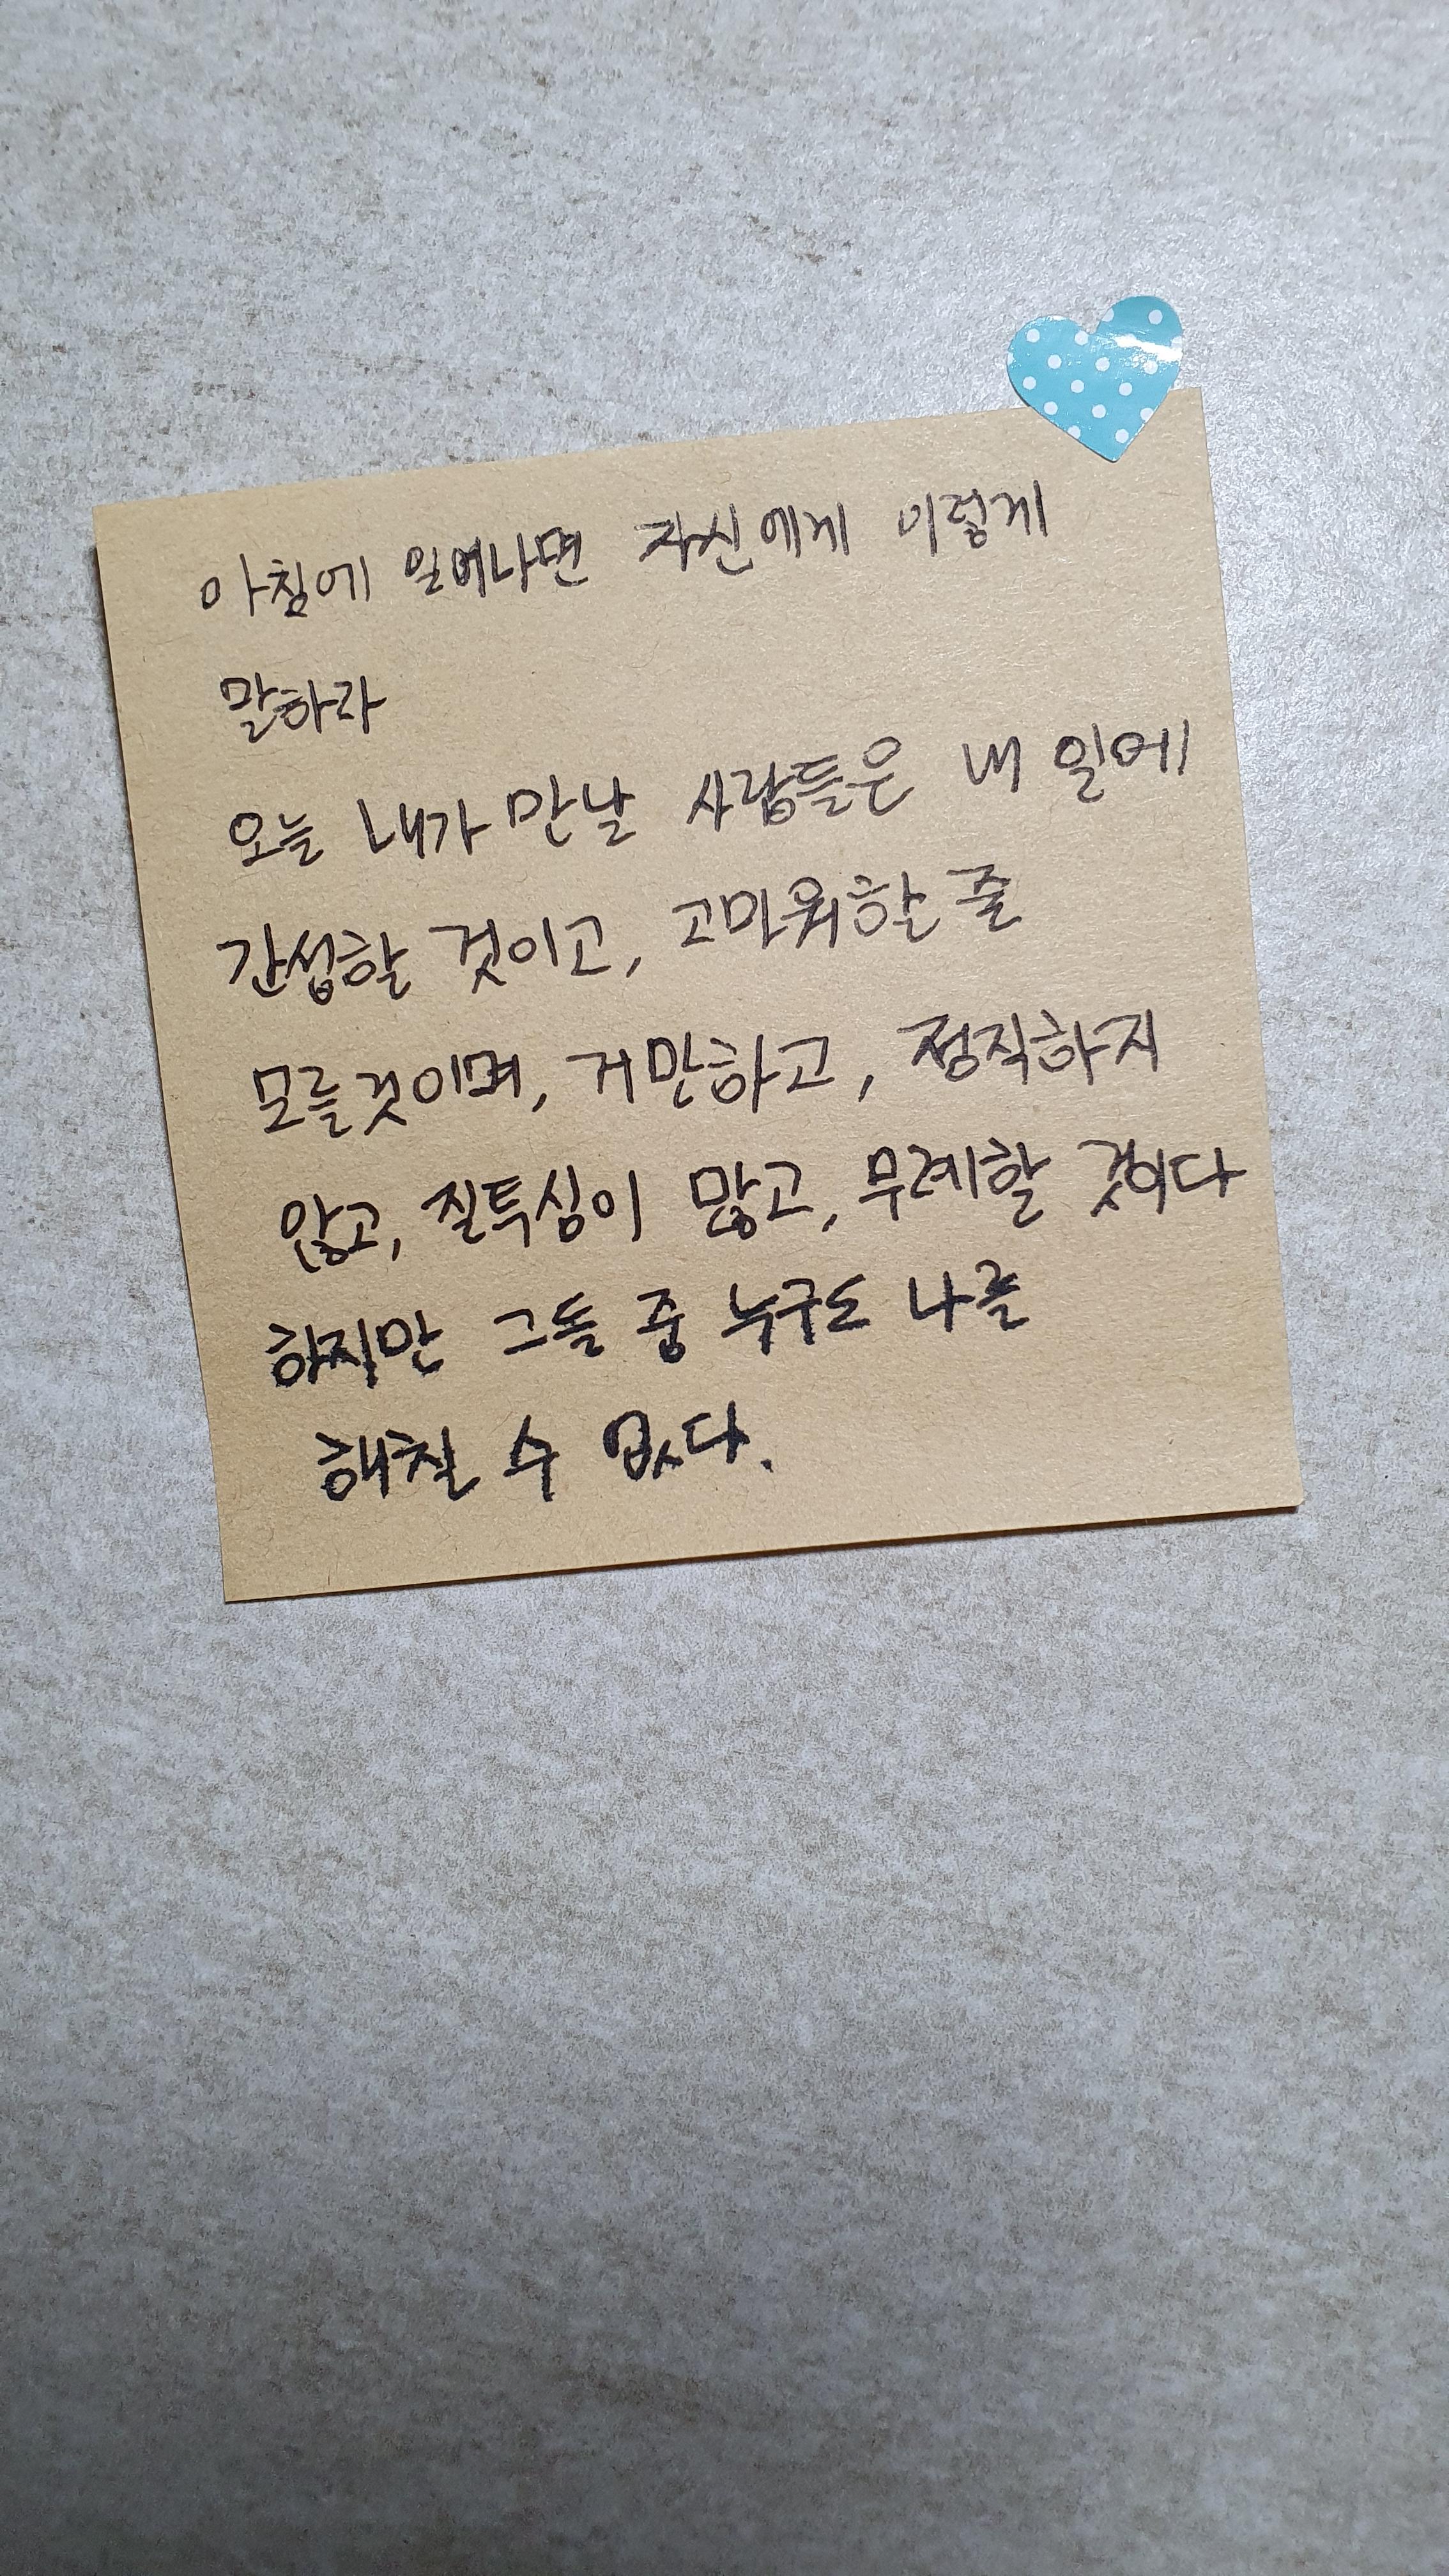 아침에 일어나면 자신에게 이렇게
말하라
오늘 내가 만날 사람들은 내 일에
간섭할 것이고, 고마워할 줄
모를것이며, 거만하고, 정직하지
않고, 질투심이 많고, 무례할 것이다
하지만 그들 중 누구도 나를
해칠 수 없다.